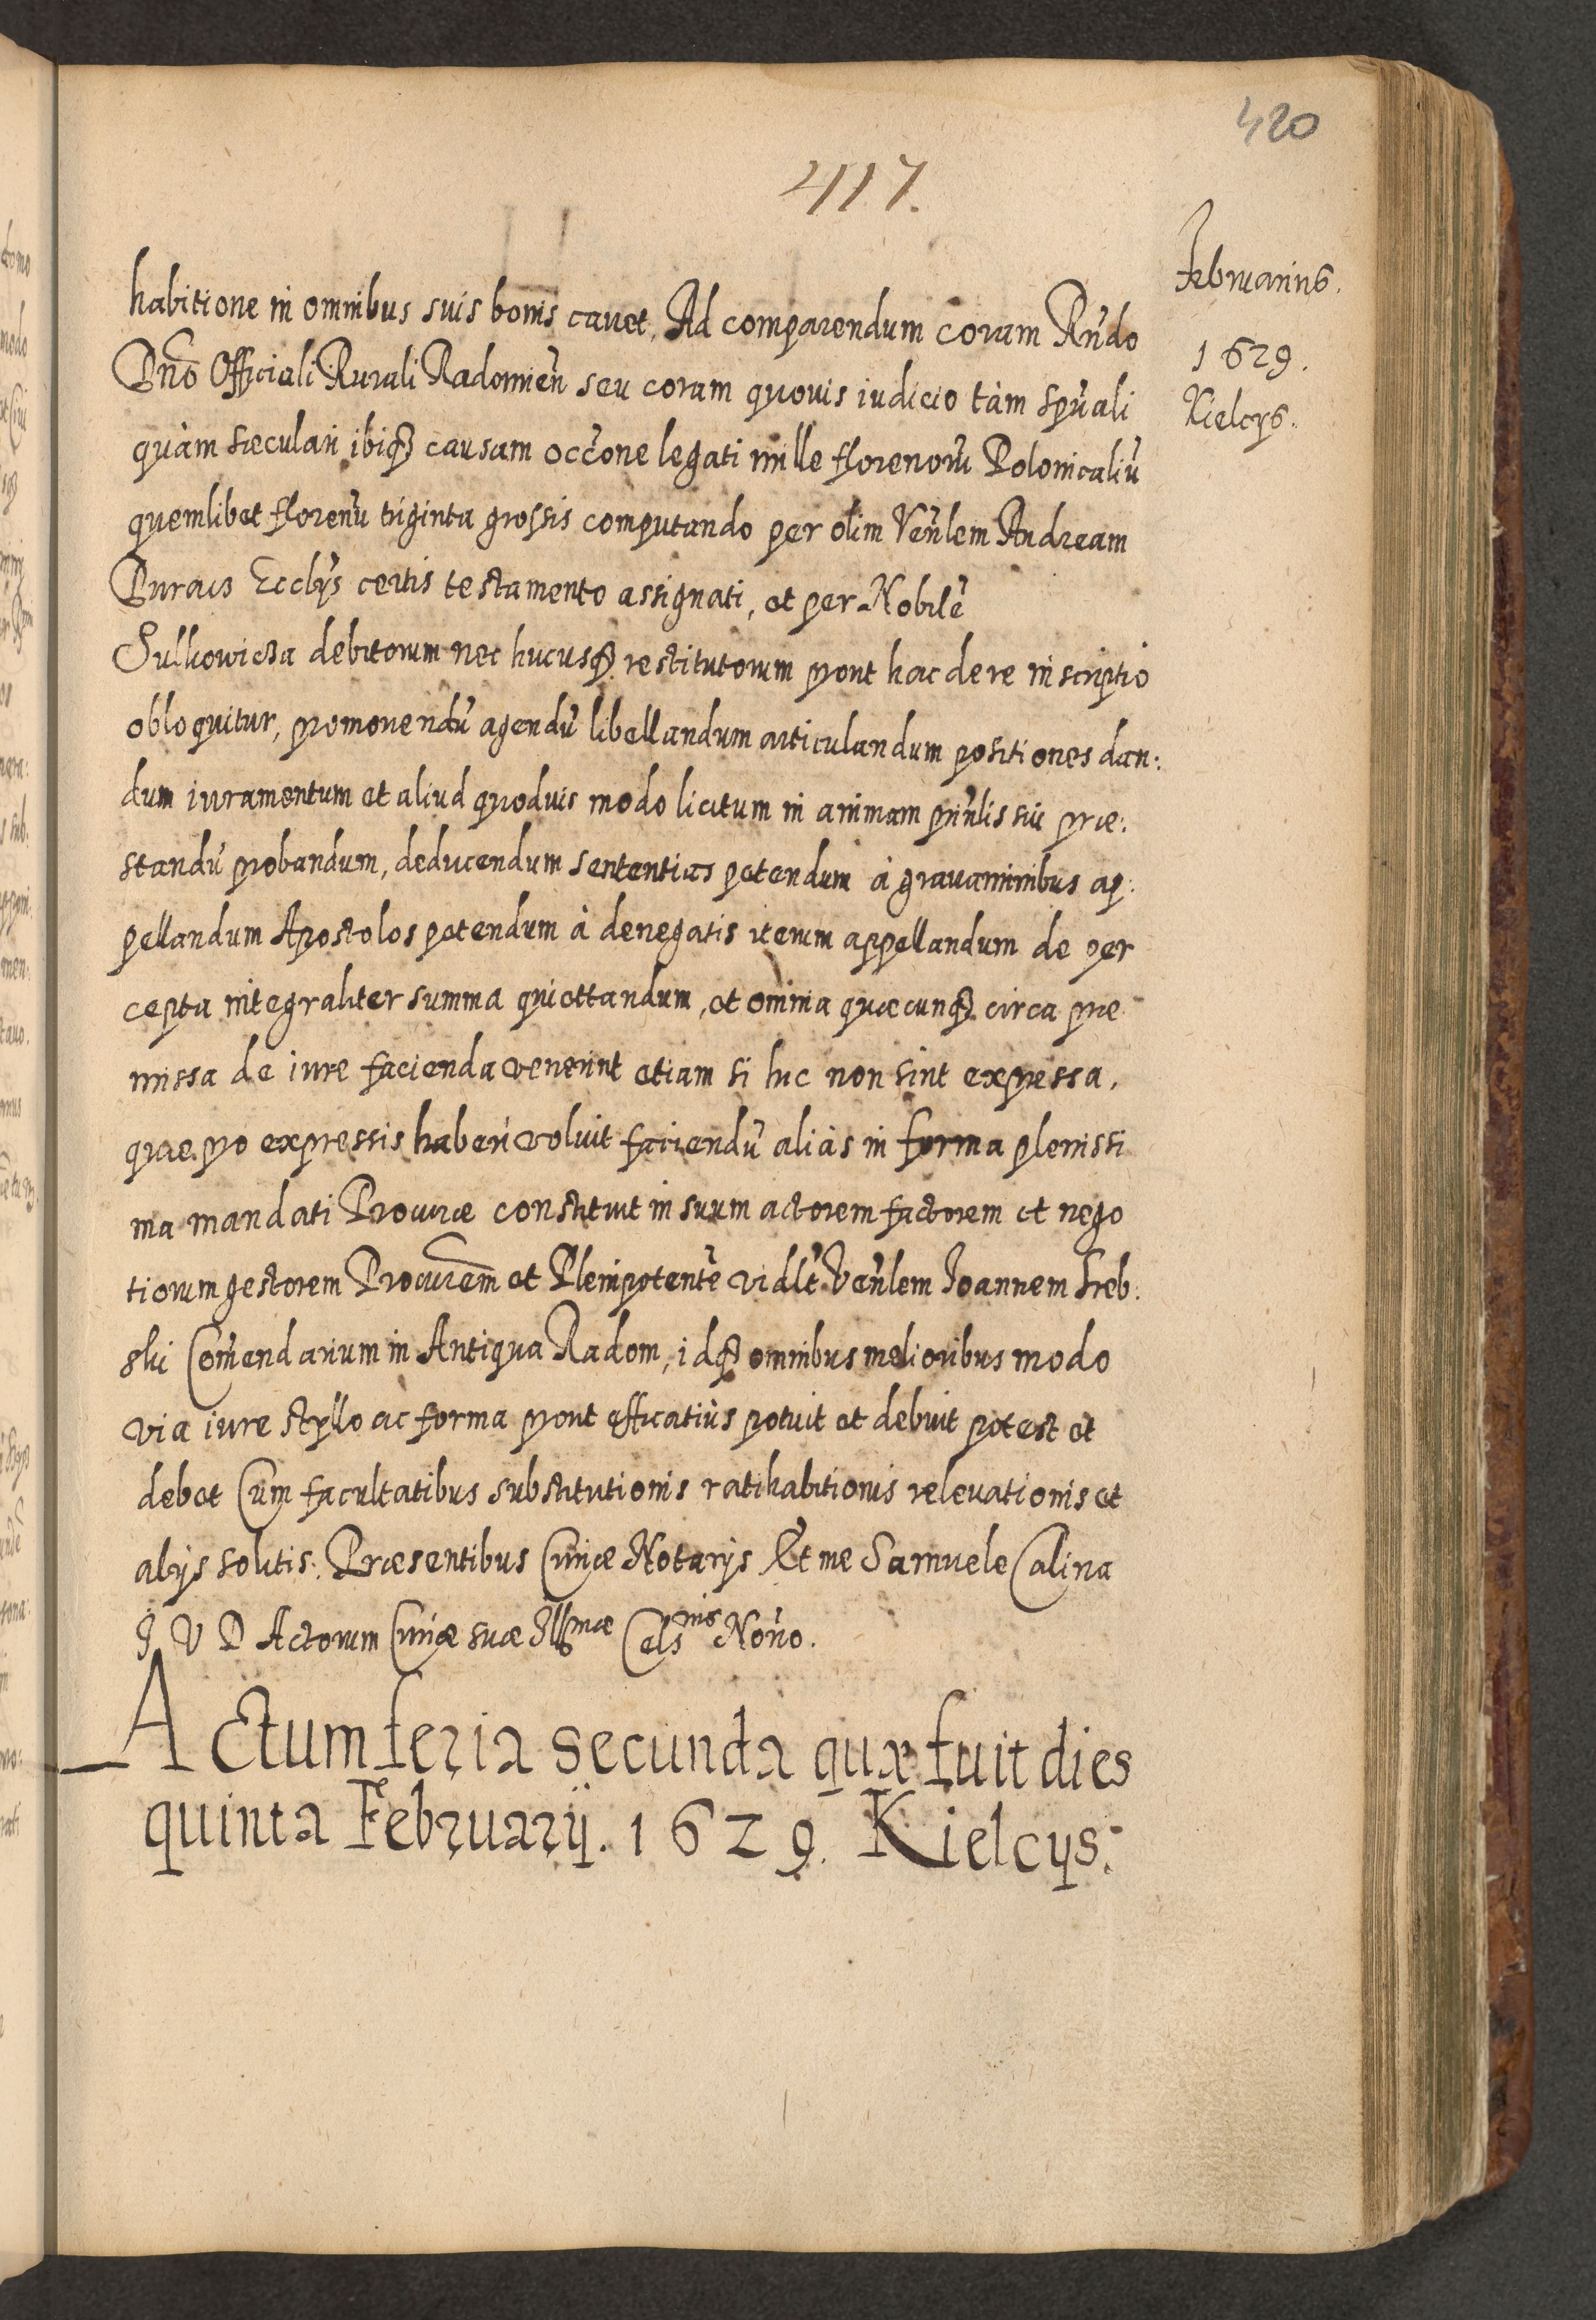 420
417.
Februarius.
1629.
Kielcys.
habitione in omnibus suis bonis cavet, Ad comparendum coram Rńdo
Dńo Officiali Rurali Radomień seu coram quovis iudicio tàm spũali
quàm sæculari ibiq́ causam occ̃one legati mille florenorũ Polonicaliũ
quemlibet florenũ triginta grossis computando per olim Veńlem Andream
Ecclýs certis testamento assignati, et per Nobilẽ
debitorum nec hucusq́ restitutorum prout hac de re inscriptio
obloquitur, promonendũ agendũ libellandum articulandum positiones dan:
dum iuramentum et aliud quodvis modo licitum in animam prińlis sui præ:
standũ probandum, deducendum sententias petendum à gravaminibus ap:
pellandum Apostolos petendum à denegatis iterum appellandum de per
cepta integraliter summa quiettandum, et omnia quæcunq́ circa præ
missa de iure facienda venerint etiam si hic non sint expressa,
quæ pro expressis haberi voluit faciendũ aliàs in forma plenissi
ma mandati Procuræ constituit in suum actorem factorem et nego
tiorum gestorem Procurem̃ et Plenipotentẽ vidlt̃ Veńlem Joannem Sreb:
ski Com̃endarium in Antiqua Radom, idq́ omnibus melioribus modo
via iure styllo ac forma prout efficatiùs potuit et debuit potest et
debet Cum facultatibus substitutionis ratihabitionis relevationis et
alijs solitis. Præsentibus Curiæ Notarijs Et me Samuele Calina
J V D Actorum Curiæ suæ Illmæ Celsnis Noŕio.
Actum feria secunda quæ fuit dies
quinta Februarij. 1629. Kielcys.